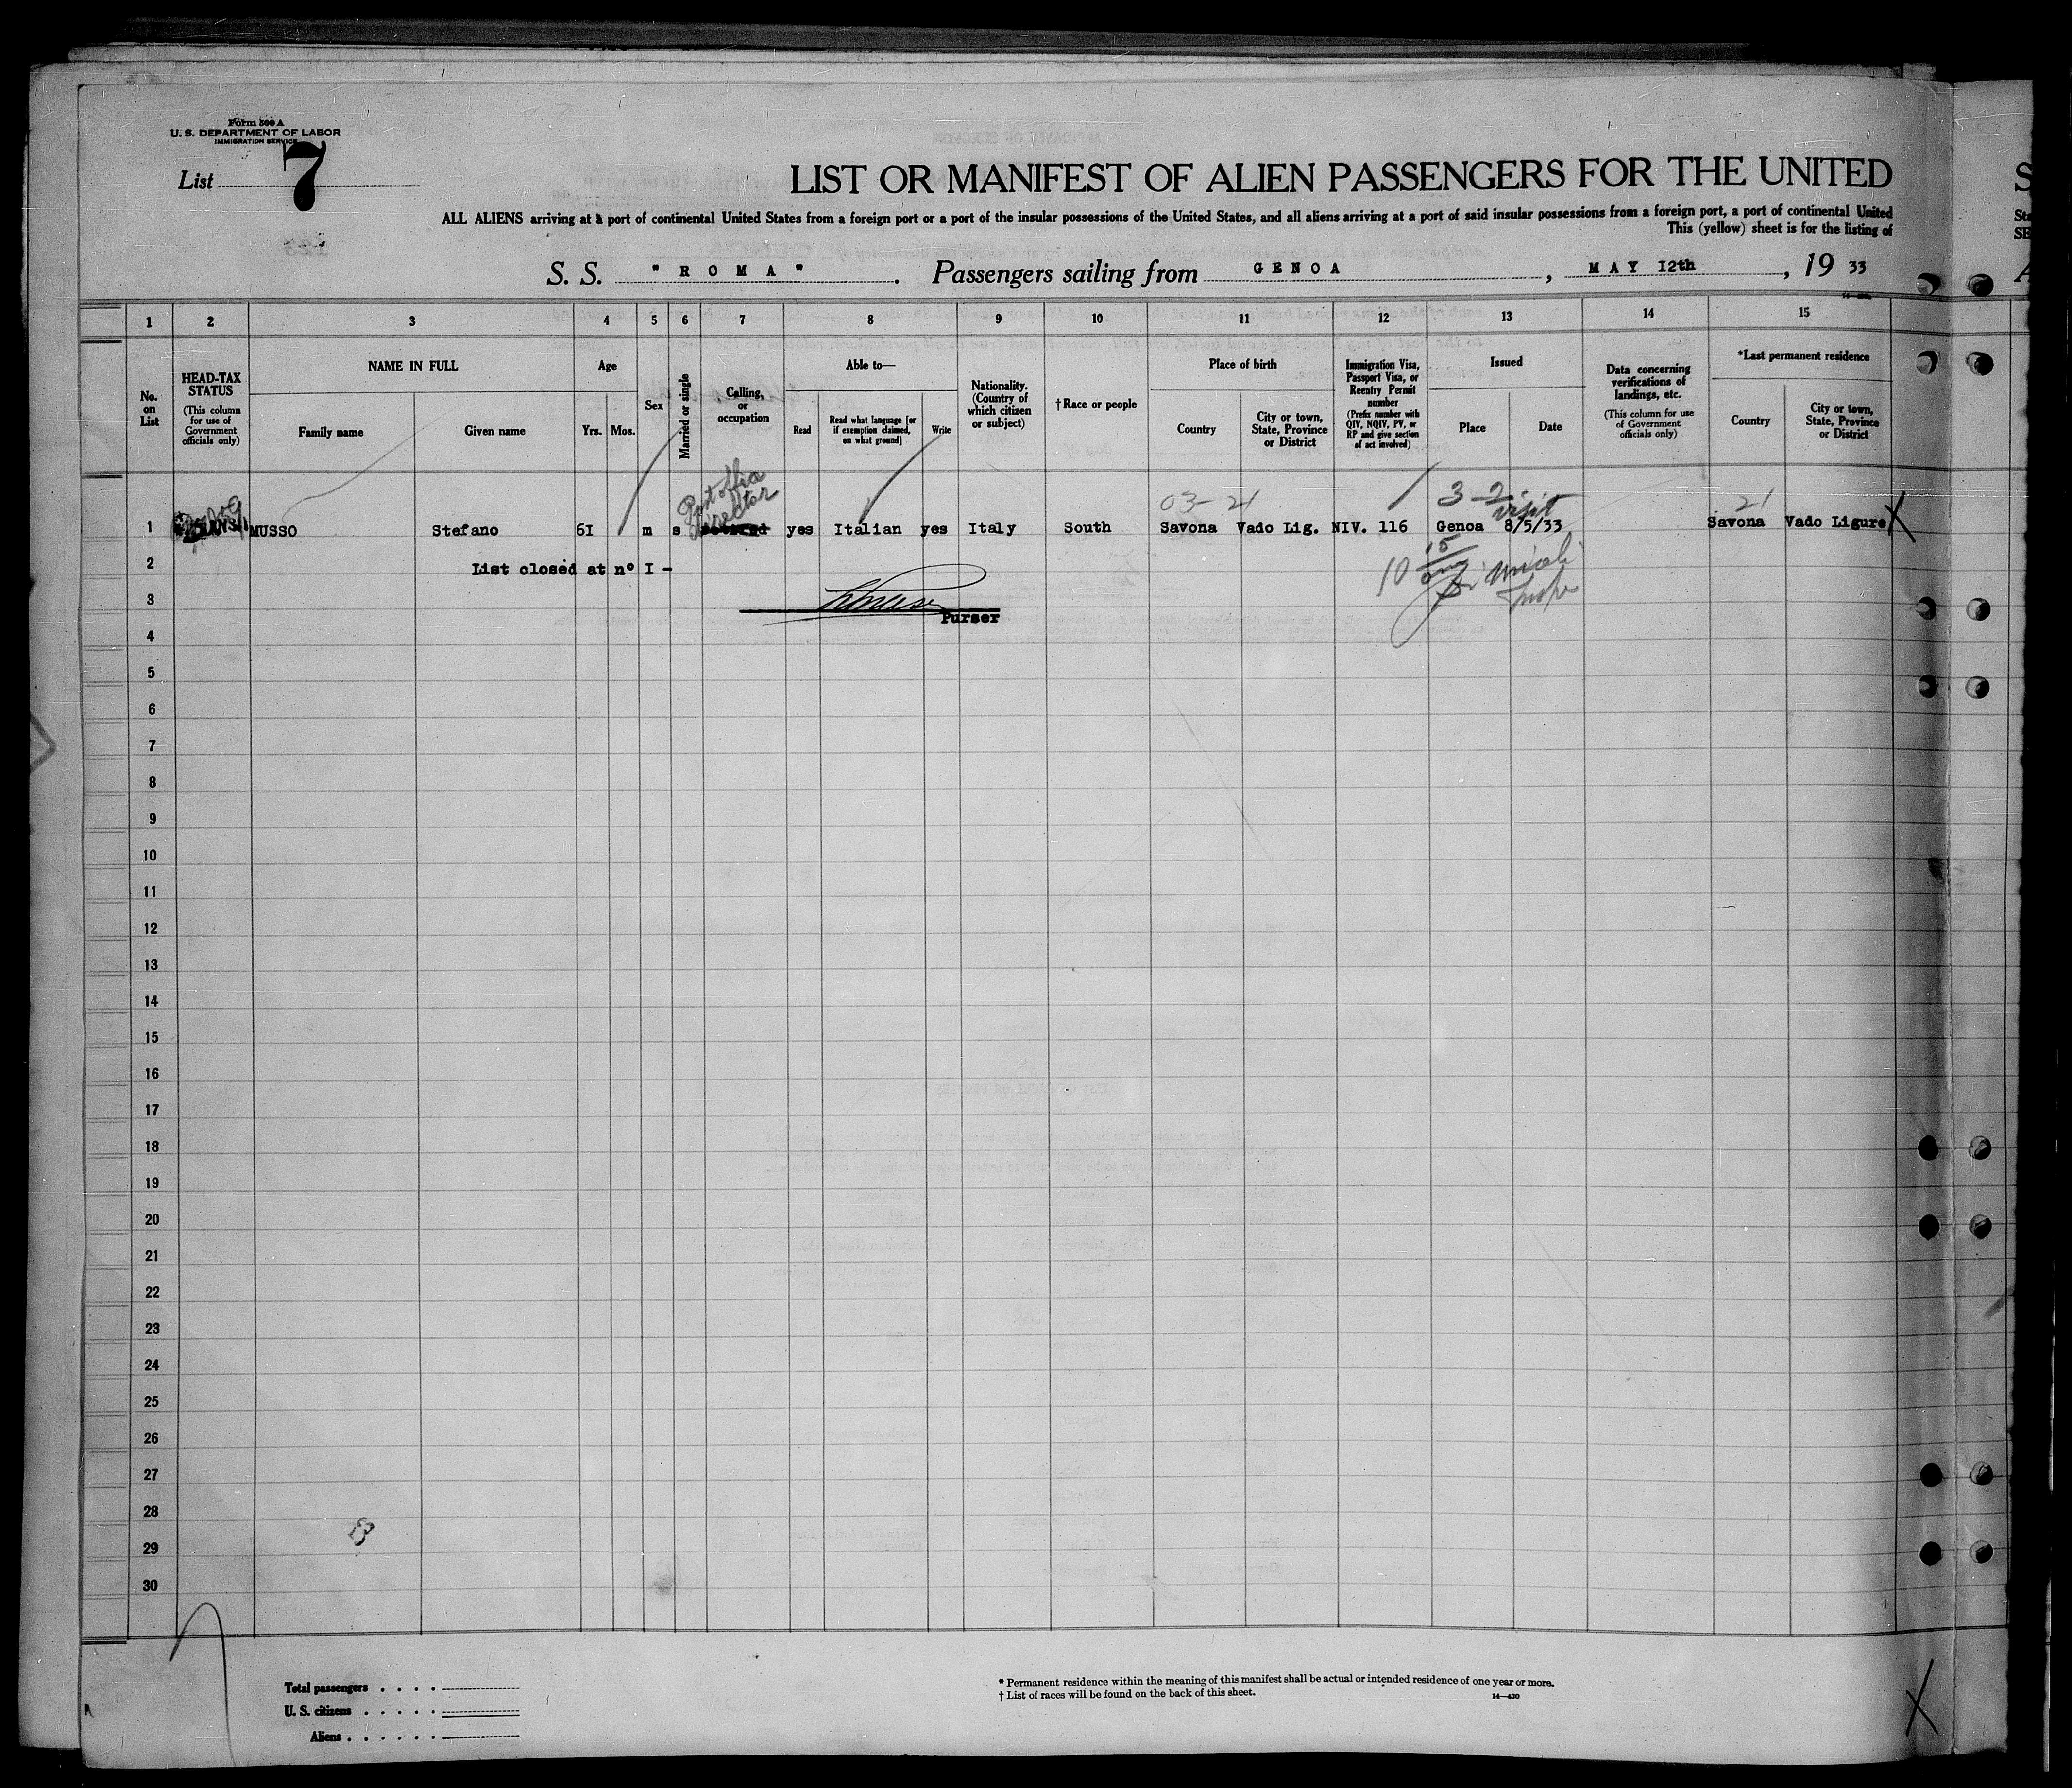 Form 500 A
U. S. DEPARTMENT OF LABOR
IMMIGRATION SERVICE
List 7
LIST OR MANIFEST OF ALIEN PASSENGERS FOR THE UNITED
ALL ALIENS arriving at a port of continental United States from a foreign port or a port of the insular possessions of the United States, and all aliens arriving at a port of said insular possessions from a foreign port, a port of continental United
This (yellow) sheet is for the listing of
S. S. "ROMA". Passengers sailing from GENOA, MAY I2th, 19 33
1 2 3 4 5 6 7 8 9 10 11 12 13 14 15
No. on List
HEAD-TAX STATUS
(This column for use of Government officials only)
NAME IN FULL
Family name
Given name
Age
Yrs. Mos.
Sex
Married or single
Calling, or occupation
Able to—
Read
Read what language [or if exemption claimed, on what ground]
Write
Nationality. (Country of which citizen or subject)
†Race or people
Place of birth
Country
City or town, State, Province or District
Immigration Visa, Passport Visa, or Reentry Permit number
(Prefix number with QIV, NQIV, PV, or RP and give section of act involved)
Issued
Place
Date
Data concerning verifications of landings, etc.
(This column for use of Government officials only)
*Last permanent residence
Country
City or town, State, Province or District
Director
03- 21
3-2
visit
21
1 MUSSO Stefano 6I m s yes Italian yes Italy South Savona Vado Lig. NIV. 116 Genoa 8/5/33 Savona Vado Ligure X
2 List closed at n° I -
10 15
3
Purser
4
5
6
7
8
9
10
11
12
13
14
15
16
17
18
19
20
21
22
23
24
25
26
27
28
29
30
Total passengers
U. S. citizens
Aliens
* Permanent residence within the meaning of this manifest shall be actual or intended residence of one year or more.
† List of races will be found on the back of this sheet.
14—430
X